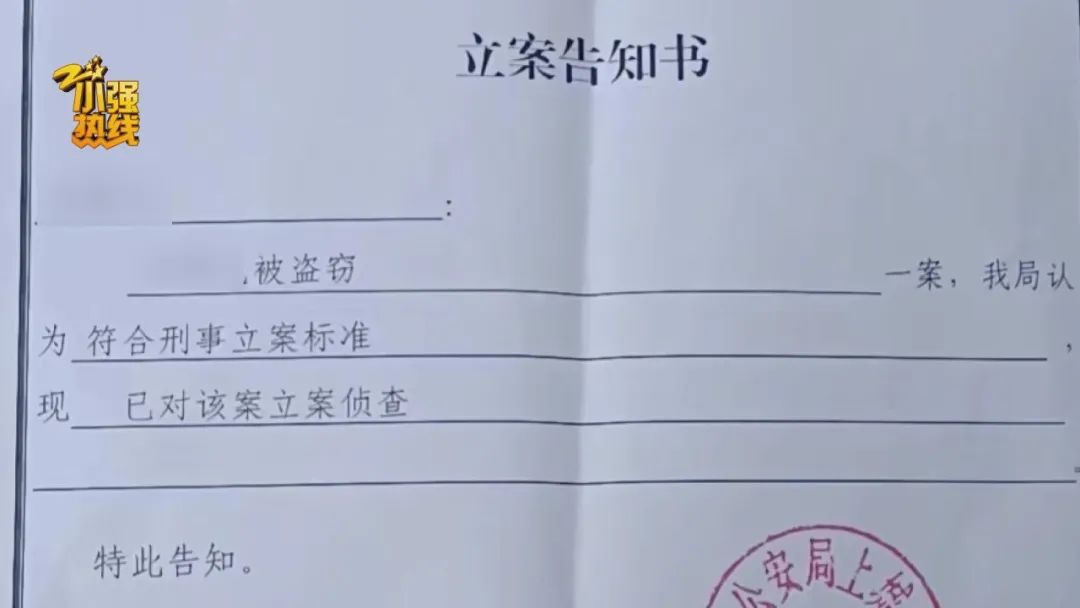 小强
热线
立案告知书
:
被盗窃 一案，我局认
为 符合刑事立案标准 ，
现 已对该案立案侦查
。
特此告知。
公安局上